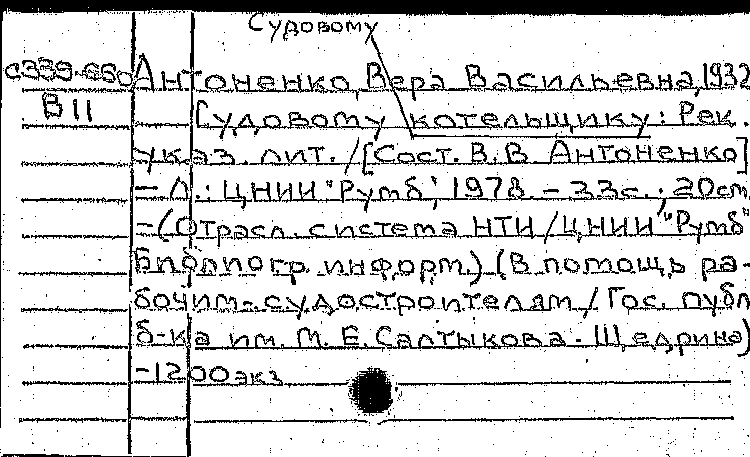 Судовому
С339-680 Антоненко, Вера Васильевна, 1932
В11 Судовому котельщику: Рек.
указ. лит. / [Сост. В. В. Антоненко]
– Л.: ЦНИИ "Румб", 1978 – 33с.; 20см.
– (Отрасл. система НТИ / ЦНИИ "Румб"
Библиогр. информ.) (В помощь ра-
бочим-судостроителям / Гос. публ
б-ка им. М. Е. Салтыкова-Щедрина)
-1200 экз